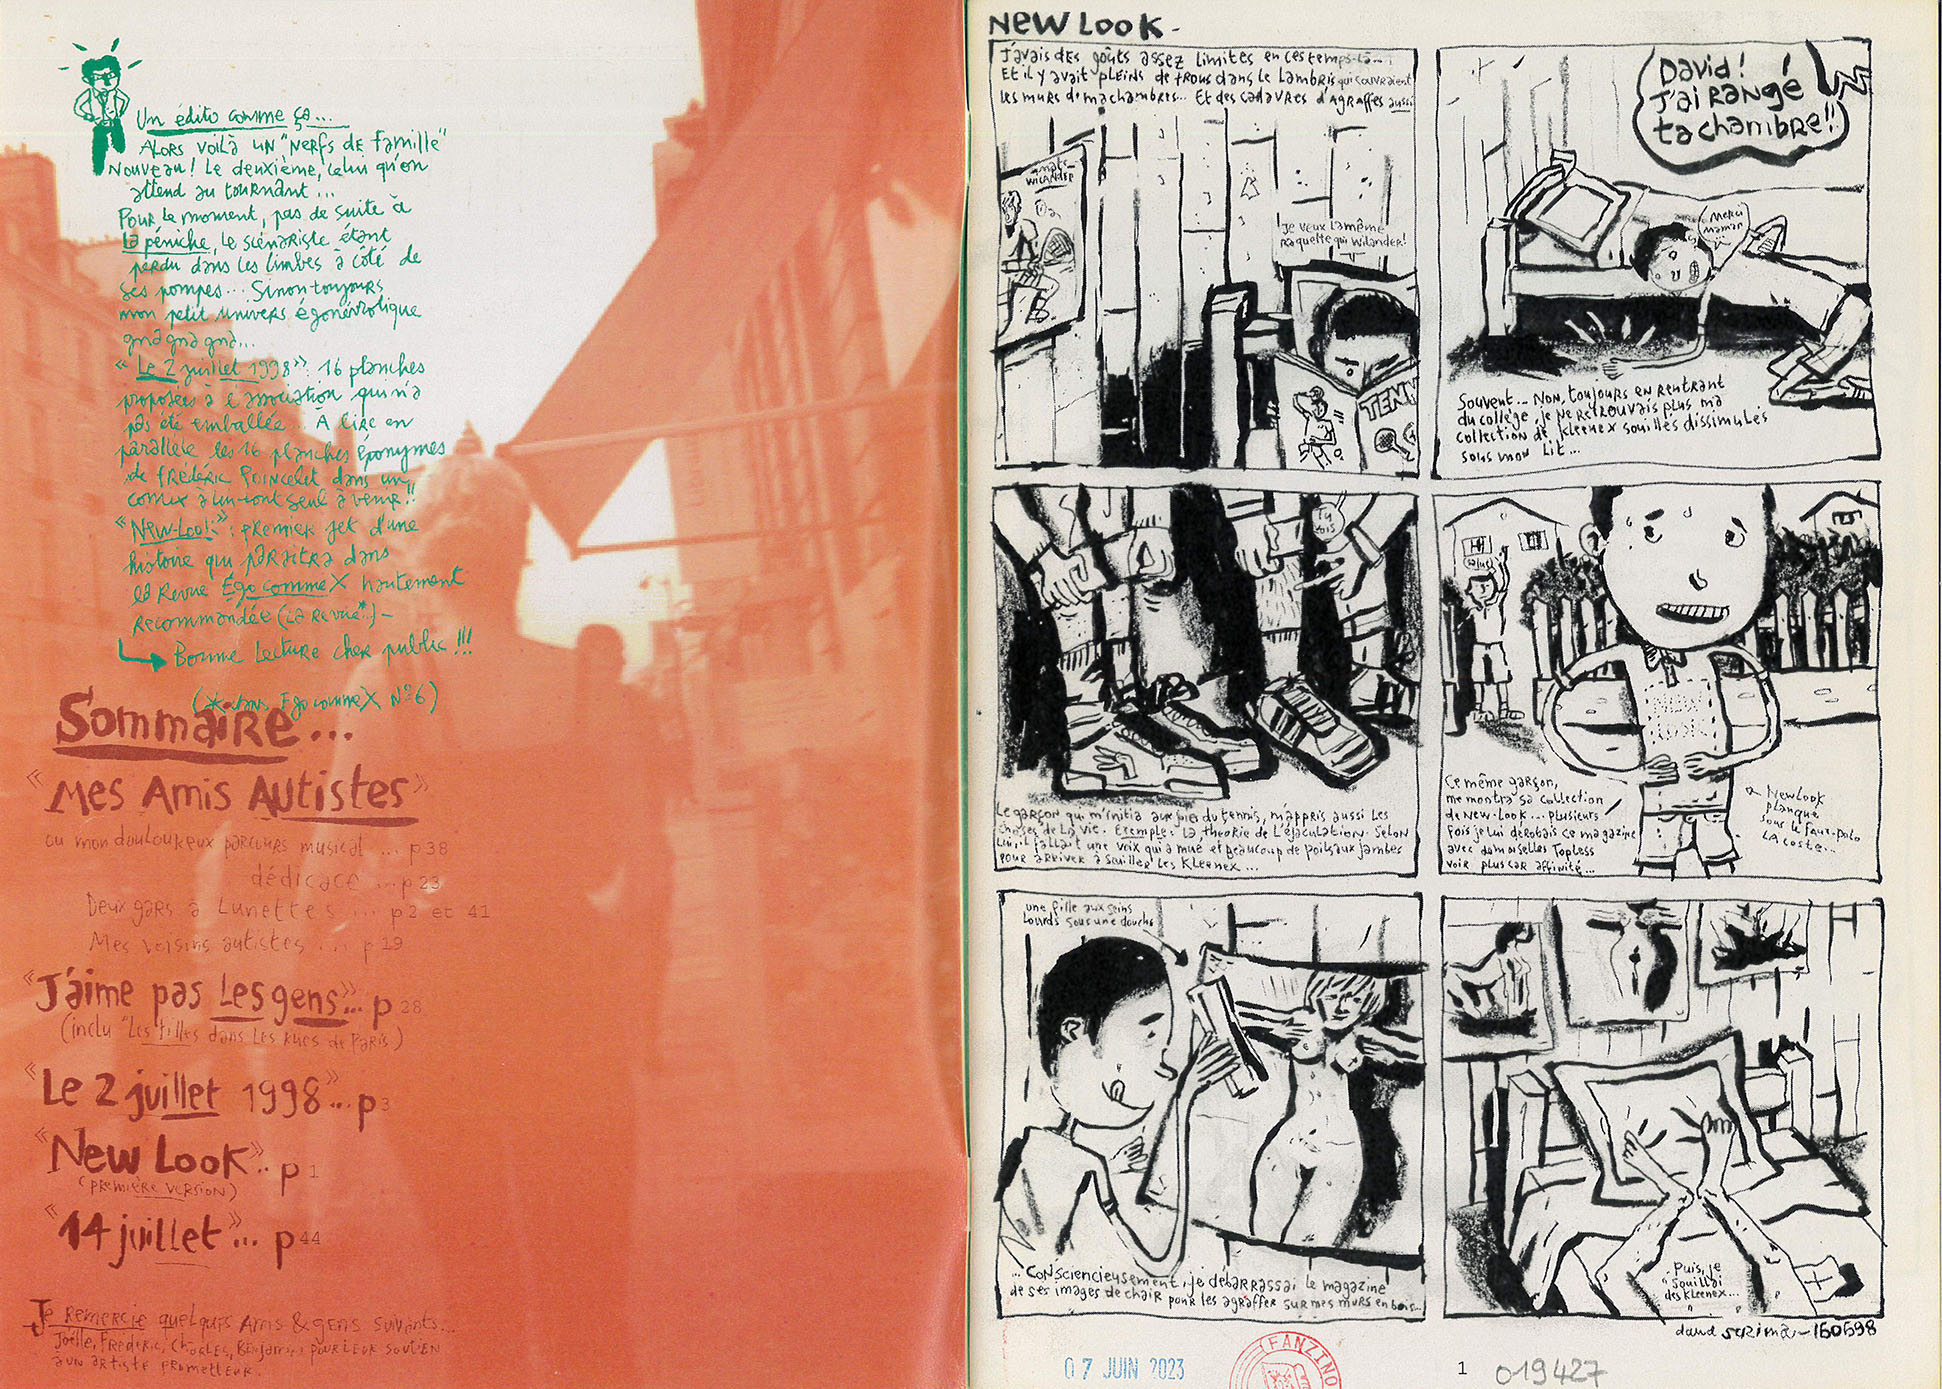 Un édito comme ça...
Alors voilà un "Nerfs de famille"
Nouveau! Le deuxième, celui qu'on
attend au tournant...
Pour le moment, pas de suite à
La péniche, le scénariste étant
perdu dans les limbes à côté de
ses pompes... Sinon toujours
mon petit univers égonévrotique
gna gna gna...
« Le 2 juillet 1998 » 16 planches
proposées à l'association qui n'a
pas été emballée... À lire en
parallèle les 16 planches éponymes
de Frédéric Poincelet dans un
comix à lui tout seul à venir!!
"New-Look": premier jet d'une
histoire qui paraitra dans
la revue Égo comme X hautement
recommandée (la revue*) -
Bonne Lecture cher public!!!
(* dans Ego comme X N°6)
Sommaire...
"Mes Amis Autistes"
ou mon douloureux parcours musical ... p38
dédicace ... p23
Deux gars à Lunettes ... p2 et 41
Mes voisins autistes ... p19
"J'aime pas Les gens"... p28
(inclu "Les filles dans les rues de Paris")
"Le 2 juillet 1998"... p3
"New Look".. p1
(première version)
"14 juillet"... p44
Je remercie quelques Amis & gens suivants...
Joëlle, Frédéric, Charles, Benjamin pour leur soutien
à un artiste prometteur.
New Look -
J'avais des goûts assez limites en ces temps-là...
Et il y avait pleins de trous dans le lambris qui couvraient
les murs de ma chambre... Et des cadavres d'agraffes aussi
Mats Wilander
Je veux la même
raquette qui Wilander!
TENN
David!
J'ai rangé
ta chambre!!
Merci
maman
Souvent... Non, toujours en rentrant
du collège, je ne retrouvais plus ma
collection de Kleenex souillés dissimulés
sous mon lit...
Tu
vois
Le garçon qui m'initia aux joies du tennis, m'appris aussi les
choses de la vie. Exemple: La théorie de l'éjaculation. Selon
lui, il fallait une voix qui a mué et beaucoup de poils aux jambes
pour arriver à souiller les Kleenex...
Salut
Ce même garçon,
me montra sa collection
de New-Look... Plusieurs
fois je lui dérobais ce magazine
avec demoiselles topless
voir plus car affinité...
New Look
planqué
sous le faux-polo
Lacoste...
une fille aux seins
lourds sous une douche
... Consciencieusement, je débarrassai le magazine
de ses images de chair pour les agraffer sur mes murs en bois...
Puis, je
souillai
des Kleenex...
150598
07 JUIN 2023
FANZINO
1
019427